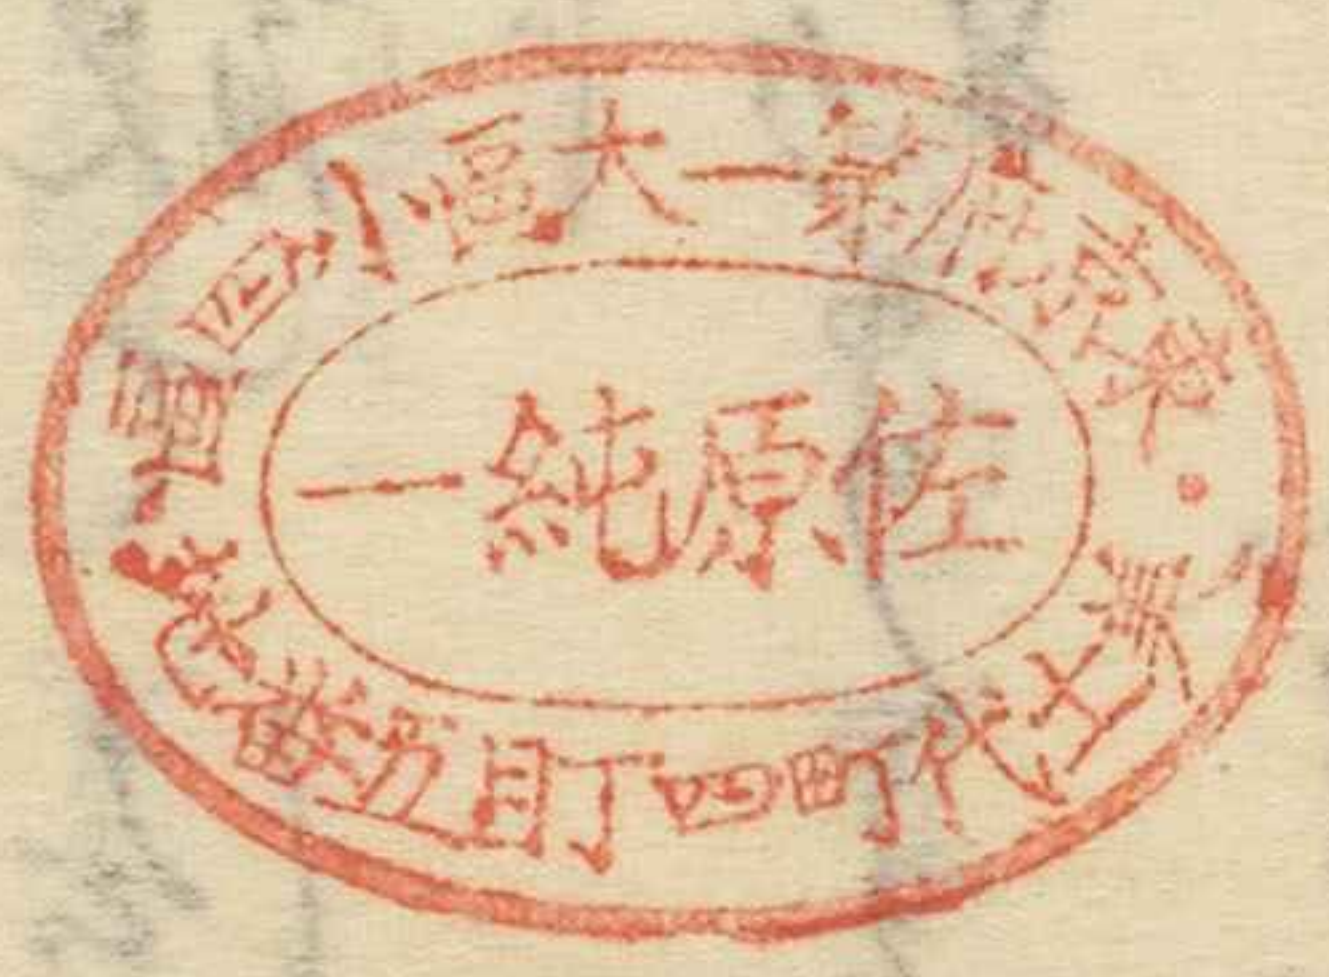 東京府第一大區小四區
佐原純一
美土代町四丁目五番地